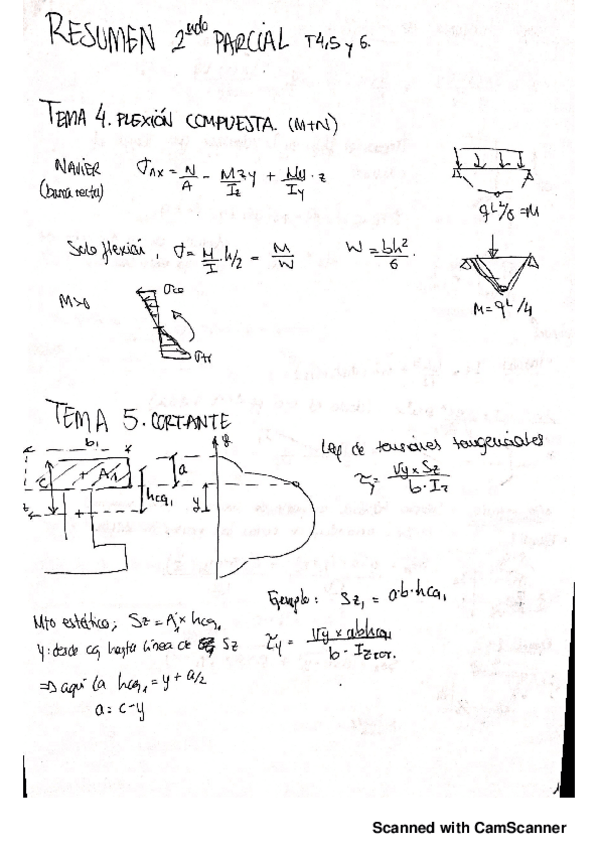 RESUMEN 2ndo PARCIAL T4,5 y 6.
TEMA 4. FLEXIÓN COMPUESTA. (M+N)
NAVIER (barra recta) σnx = N/A - Mz y/Iz + My/Iy · z
qL²/8 = M
Solo flexión, σ = M/I · h/2 = M/W W = bh²/6.
M = qL/4
M>0
TEMA 5. CORTANTE
b1
Ley de tensiones tangenciales
c + A1 a
hcg1
τy = Vy × Sz / b · Iz
z + y
Ejemplo: Sz1 = a·b·hcg1
Mto estático; Sz = A1 × hcg1
y: desde cg hasta línea de Sz
τy = Vy × a b hcg1 / b · Iz
⇒ aquí la hcg1 = y + a/2
a = c - y
Scanned with CamScanner